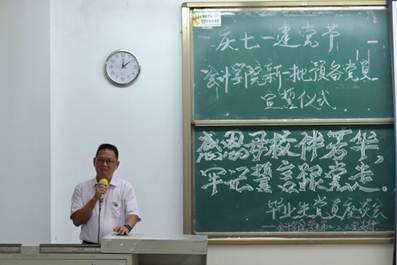 庆七一建党节
会计学院新一批预备党员
宣誓仪式
感恩母校伴芳华,
牢记誓言跟党走.
毕业生党员座谈会